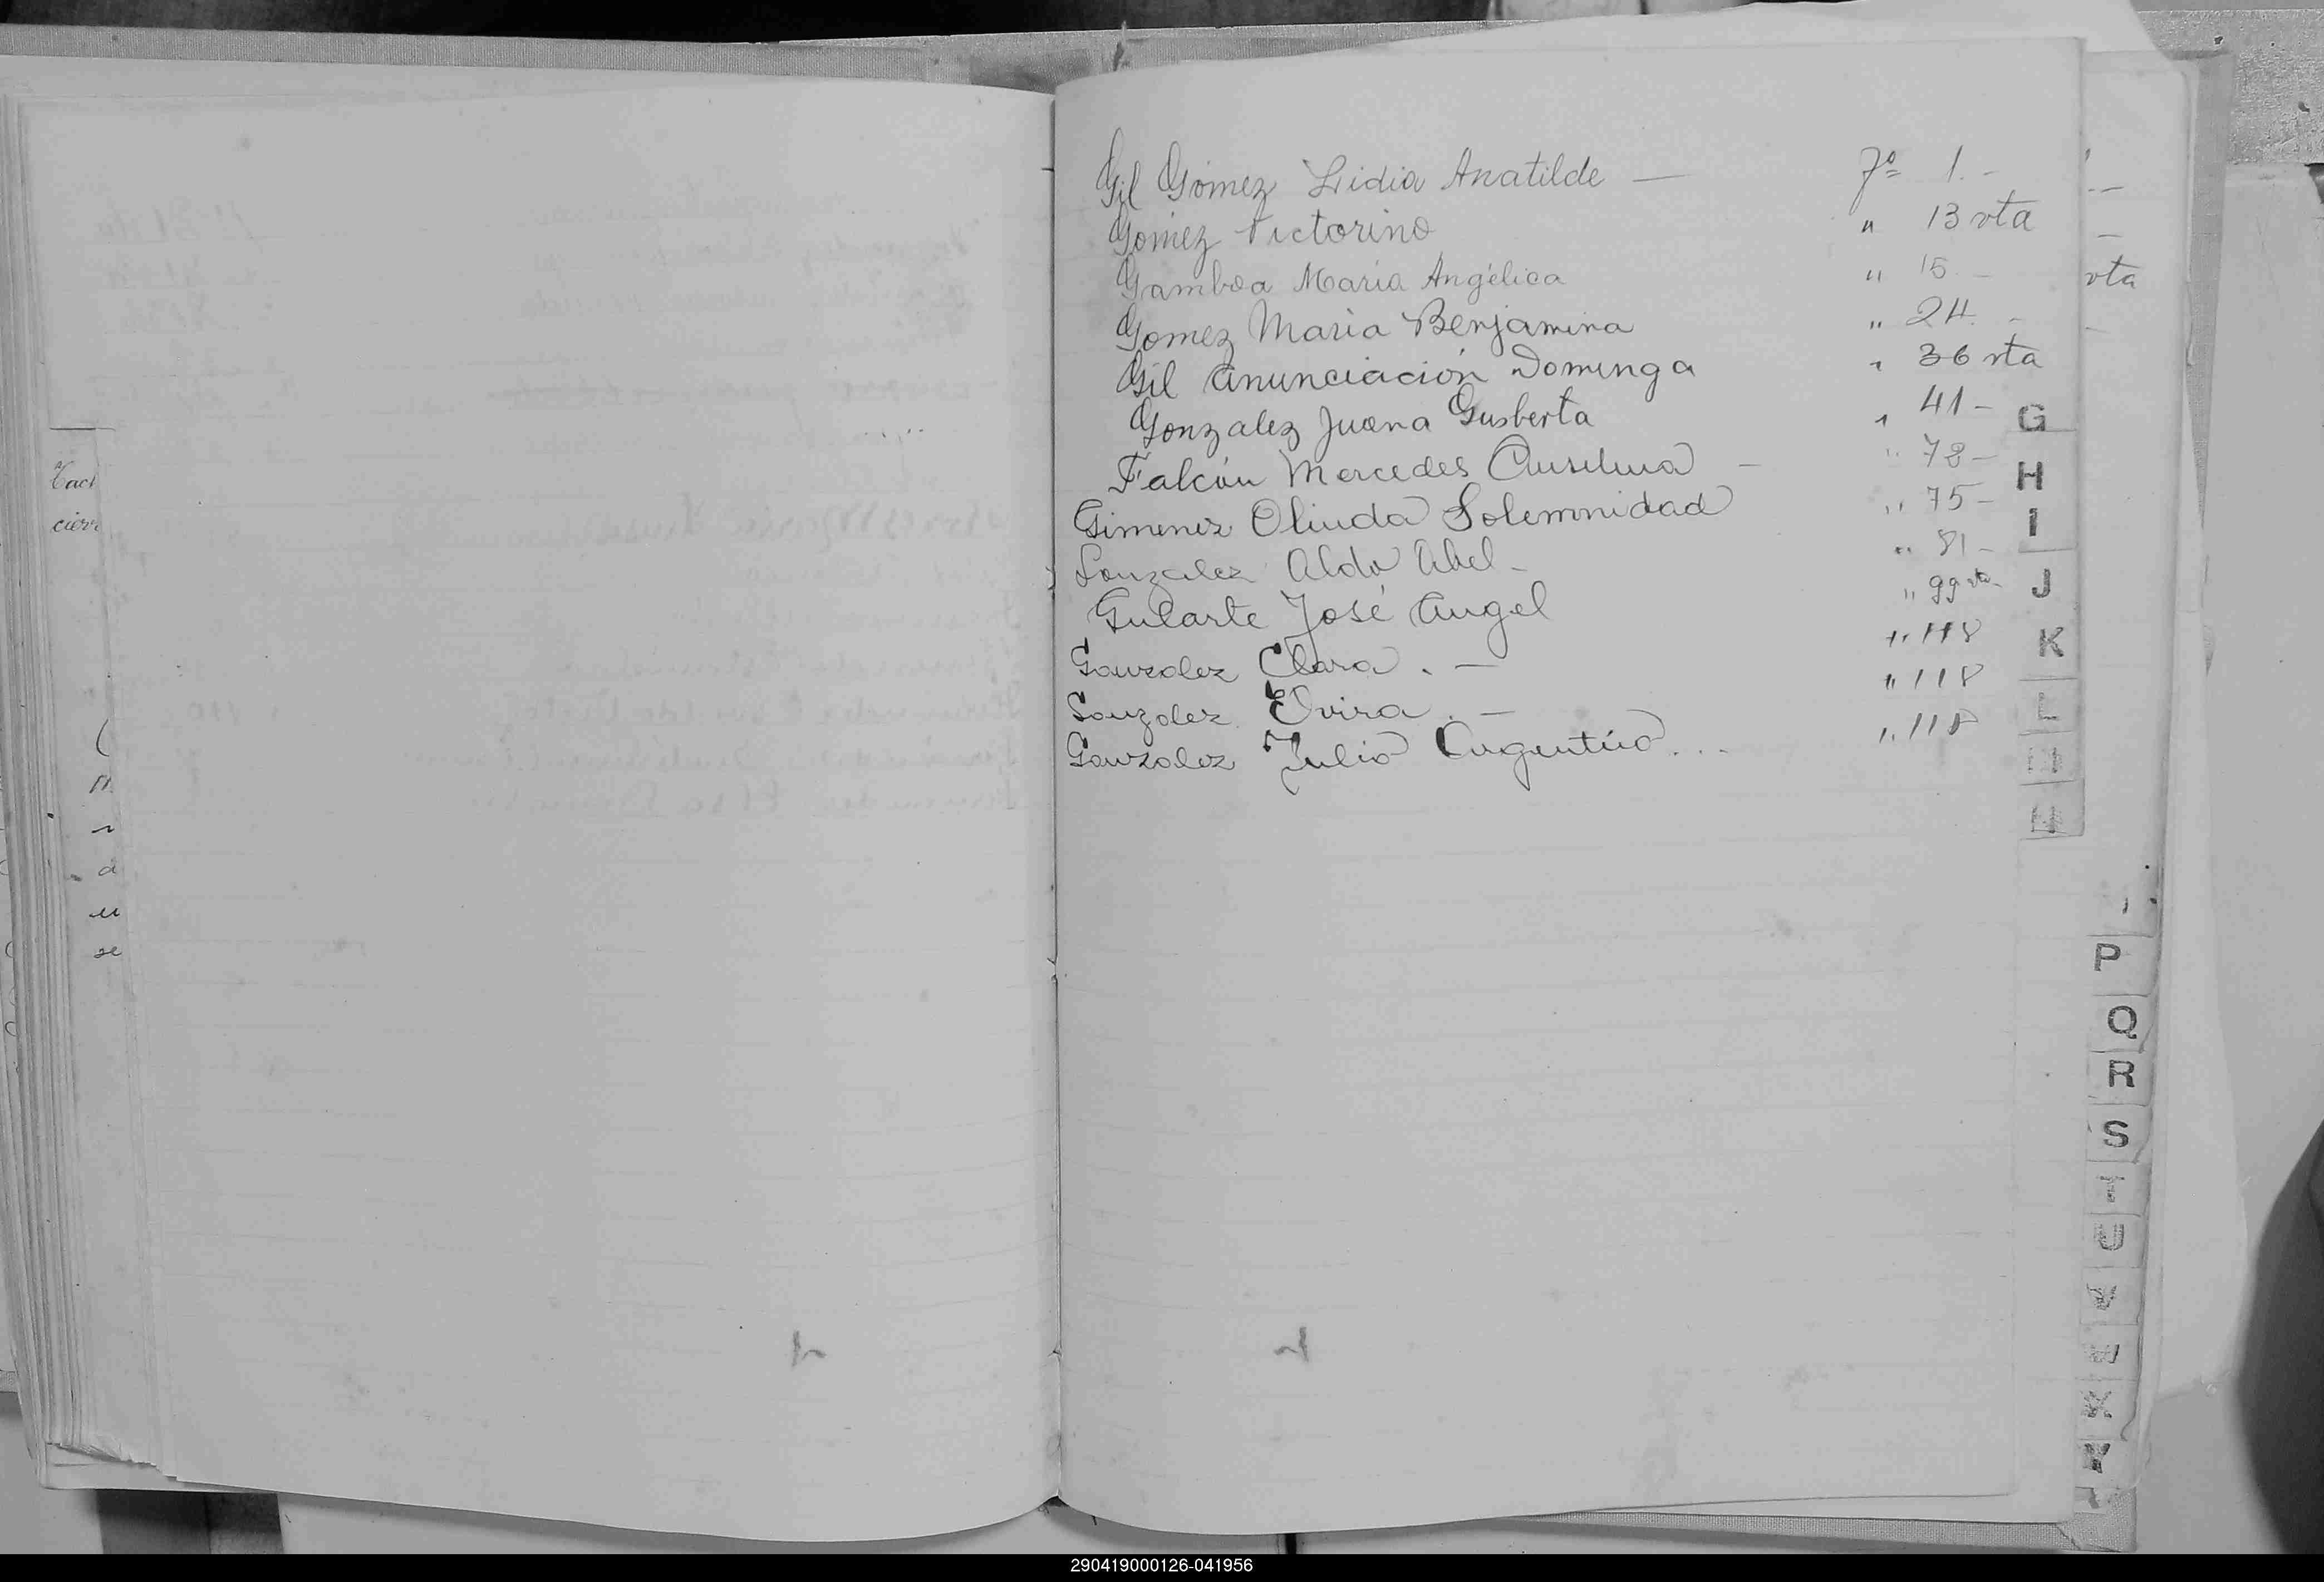 Gil Gómez Lidia Anatilde — Fº 1. -
Gómez Victorino " 13 vta
Gamboa María Angélica " 15 -
Gomez María Benjamina " 24. -
Gil Anunciación Dominga " 36 vta
Gonzalez Juana Gusberta " 41 -
Falcón Mercedes Anselma — " 72 -
Gimenez Olinda Solemnidad " 75 -
Gonzalez Aldo Abel - " 81 -
Gularte José Angel " 99 vta -
Gonzalez Clara . — " 118
Gonzalez Elvira . — " 118
Gonzalez Julio Argentino . . . " 118
vta
G
H
I
J
K
L
P
Q
R
S
T
U
V
Y
290419000126-041956